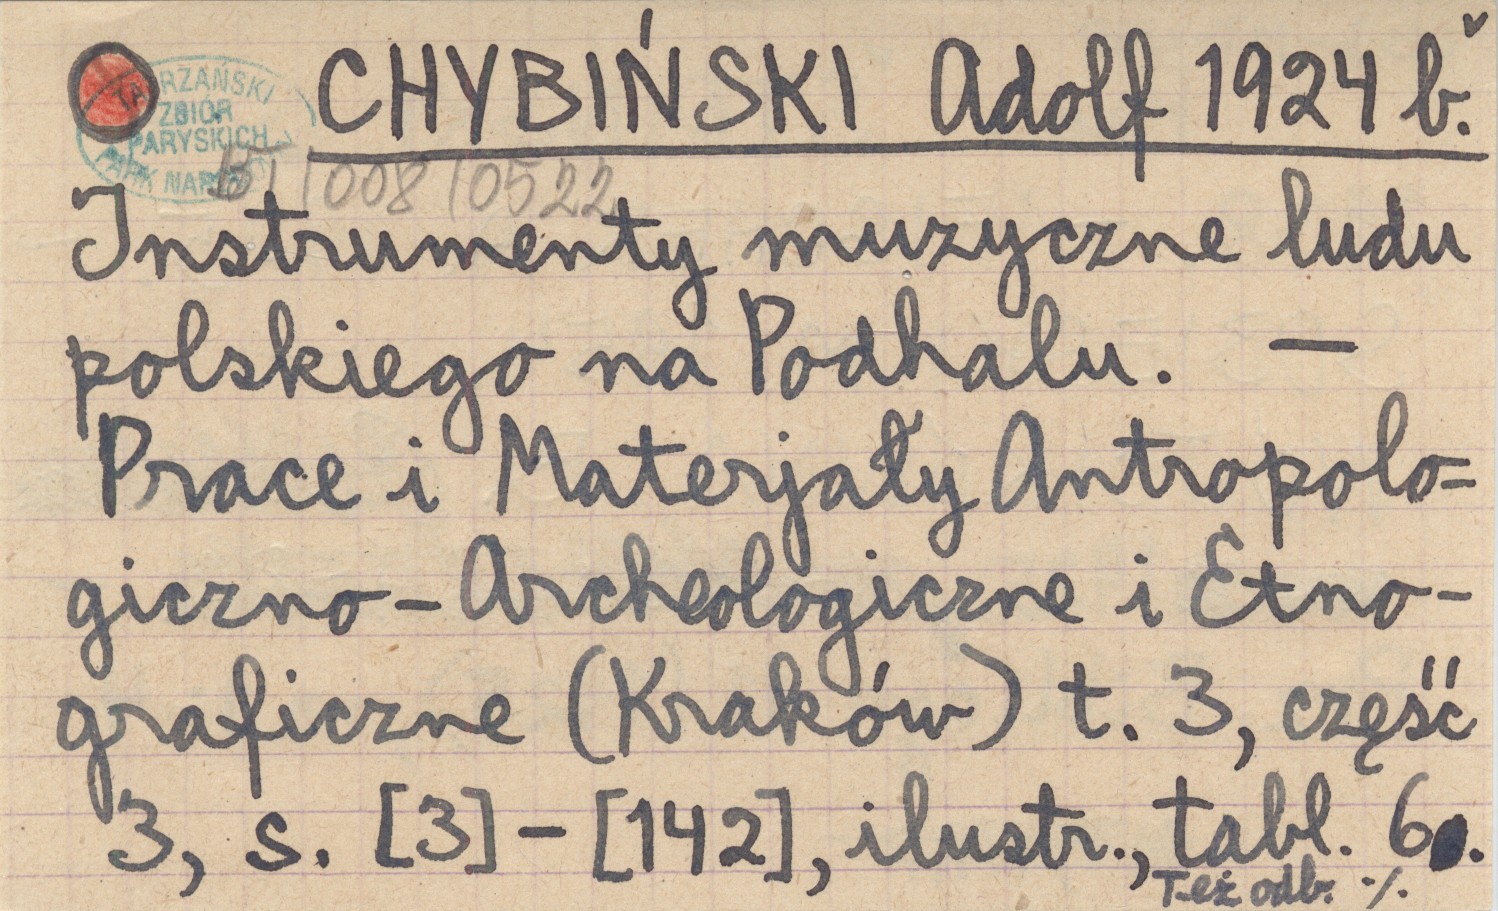 CHYBIŃSKI Adolf 1924 b.
TA RZAŃSKI
ZBIÓR
PARYSKICH
PARK NAR
/008/0522
Instrumenty muzyczne ludu
polskiego na Podhalu. —
Prace i Materjały Antropolo=
giczno - Archeologiczne i Etno-
graficzne (Kraków) t. 3, część
3, s. [3] - [142], ilustr., tabl. 6.
Też odb. ./.